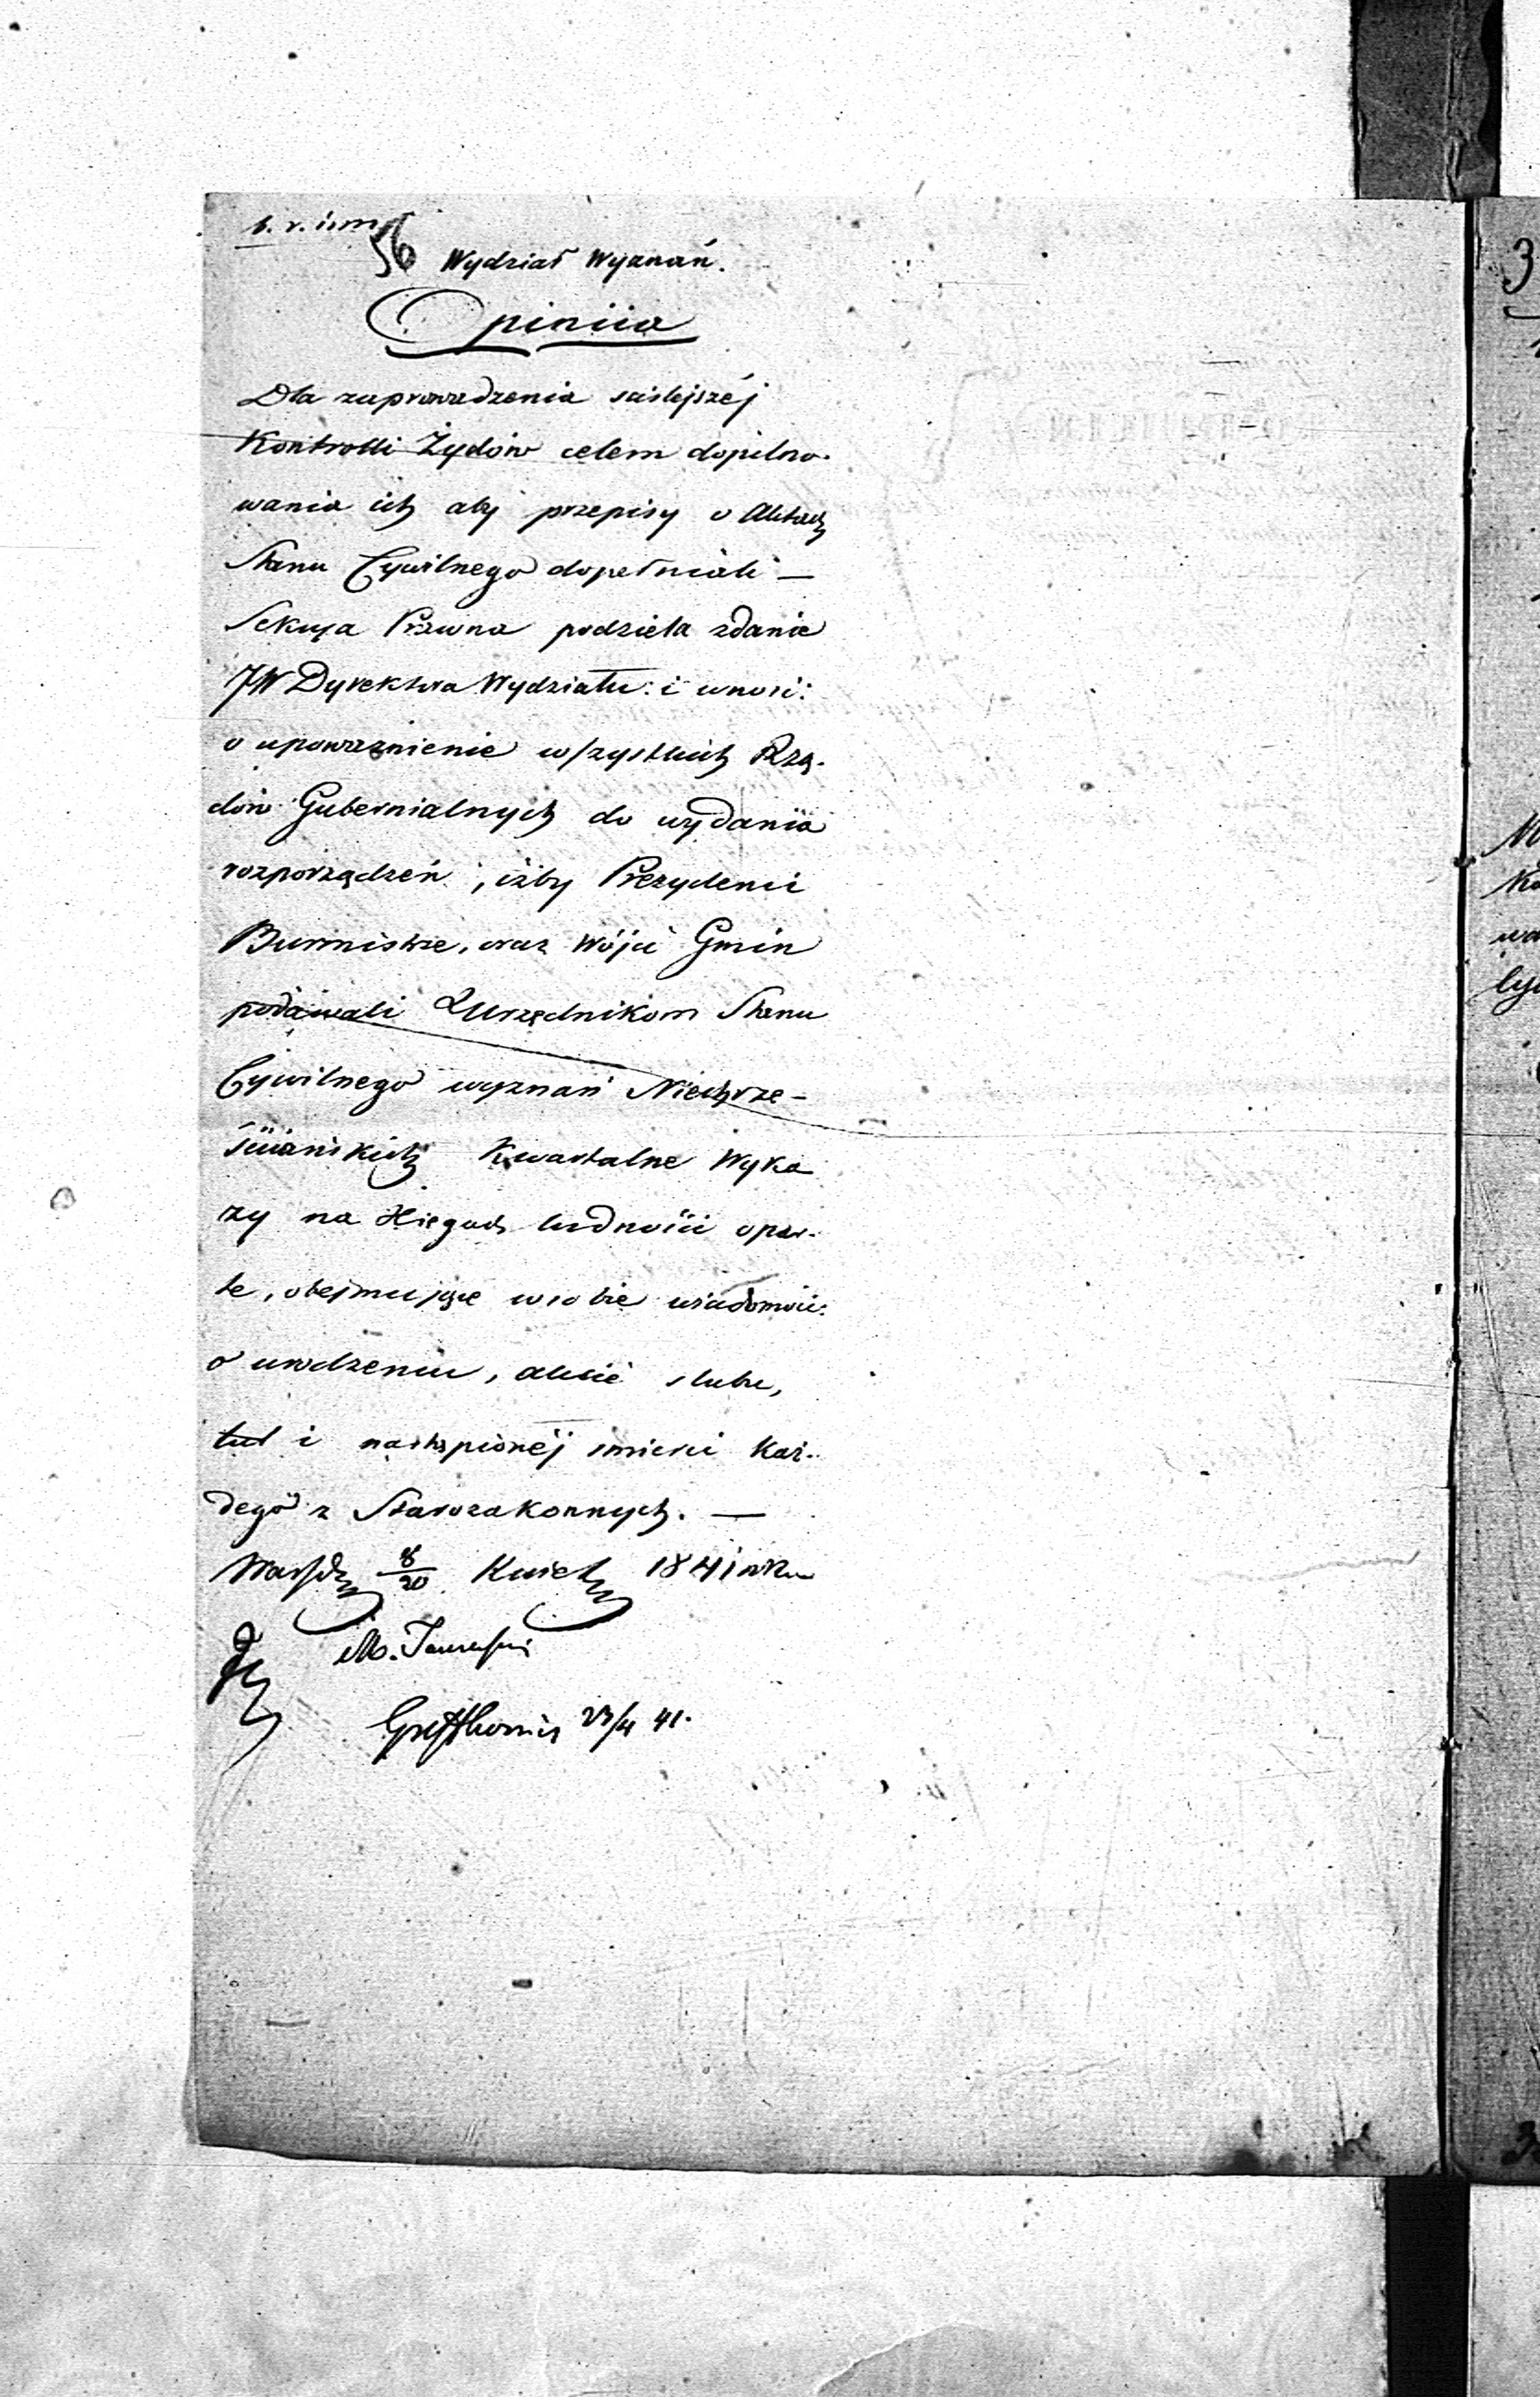 56 Wydział Wyznań.
Opiniia
Dla zaprowadzeniaściślejszéj
Kontrolli Żydów celem dopilno-
wania ich aby przepisy o Aktach
Stanu Cywilnego dopełniali —
Sekcya Prawna podziela zdanie
JW Dyrektora Wydziału: i wnosi:
o upoważnienie wszystkich Rzą-
dów Gubernialnych do wydania
rozporządzeń, iżby Prezydenci
Burmistrze, oraz Wójci Gmin
podawali Urzędnikom Stanu
Cywilnego wyznań Niechrze-
ściańskich Kwartalne Wyka
zy na Xięgach ludności opar-
te, obejmujące w sobie wiadomość:
o urodzeniu, akcie ślubu,
i nastąpionéj śmierci Każ-
dego z Starozakonnych. —
Warsz 8/20 Kwiet 1841 roku
M.
23/4 41.